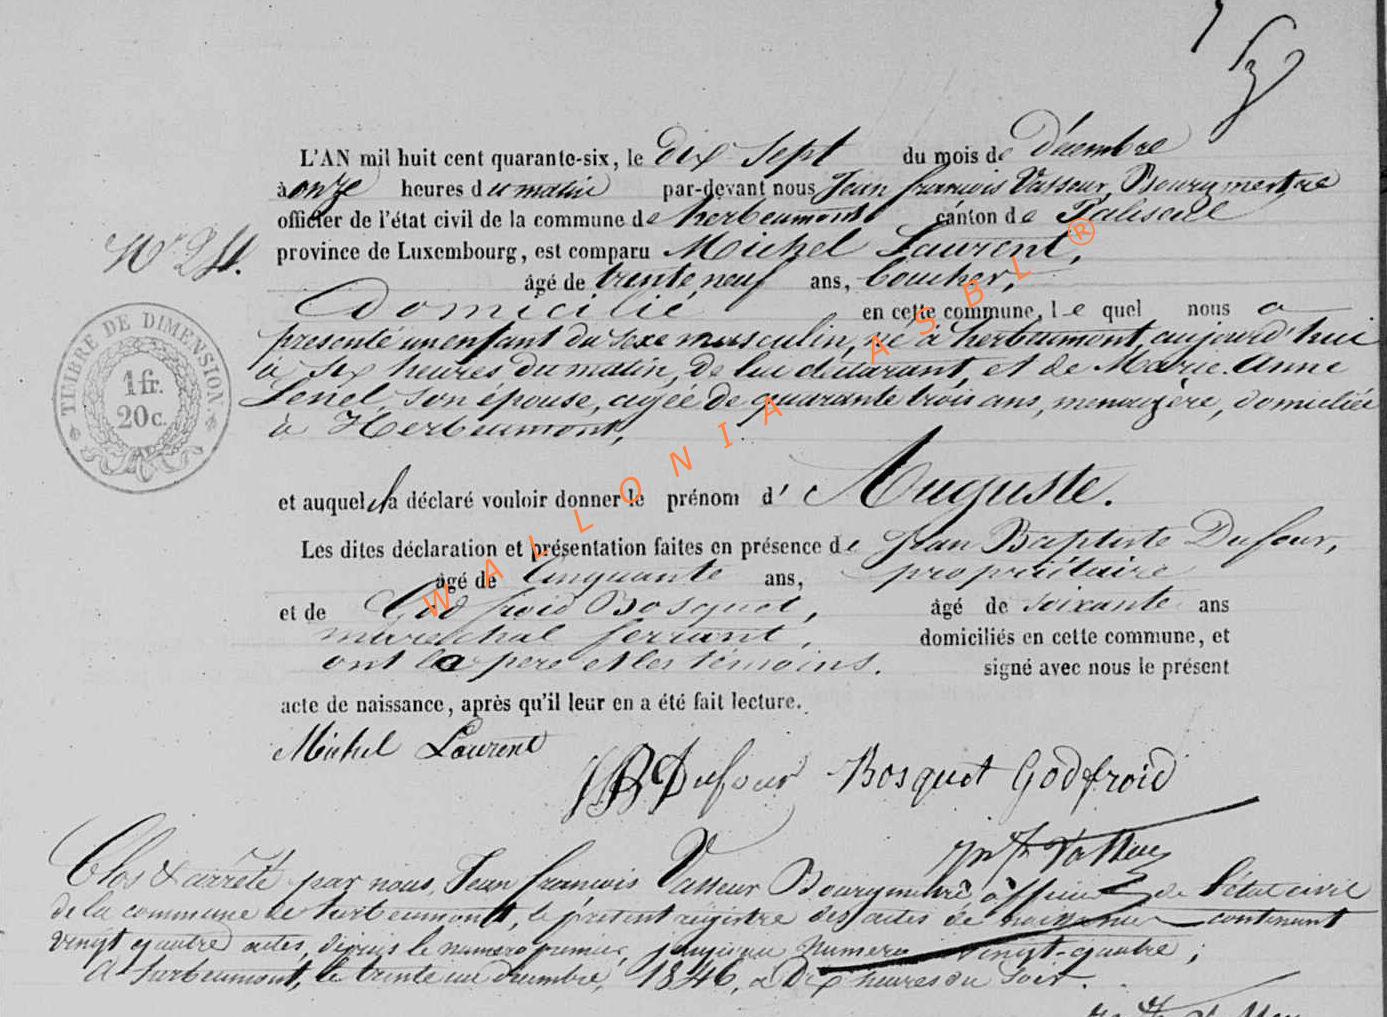 L'AN mil huit cent quarante-six, le dix sept du mois de Décembre
à onze heures du matin par-devant nous Jean françois Vasseur, Bourgmestre
officier de l'état civil de la commune de herbeumont canton de Paliseul
N° 24. province de Luxembourg, est comparu Michel Laurent,
âgé de trente neuf ans, boucher,
Domicilié en cette commune, lequel nous a
presenté un enfant du sexe masculin, né à herbeumont, aujourd'hui
à six heures du matin, de lui déclarant, et de Marie Anne
Lenel son épouse, agée de quarante trois ans, menagère, domiciliée
à Herbeumont,
et auquel il a déclaré vouloir donner le prénom d'Auguste.
Les dites déclaration et présentation faites en présence de Jean Baptiste Dufour,
âgé de Cinquante ans, propriétaire
et de Godfroid Bosquet, âgé de soixante ans
maréchal ferrant, domiciliés en cette commune, et
ont le pere et les témoins. signé avec nous le présent
acte de naissance, après qu'il leur en a été fait lecture.
Michel Laurent
JB Dufour Bosquet Godfroid
Clos & arrêté par nous, Jean françois Vasseur Bourgmestre, officier de l'état civil
de la commune de herbeumont, le présent régistre des actes de naissance contenant
vingt quatre actes, depuis le numero premier, jusqu'au numero vingt-quatre ;
A herbeumont, le trente un decembre, 1846, à Dix heures du soir.
TIMBRE DE DIMENSION
1 fr.
20 c.
WALLONIA ASBL ®